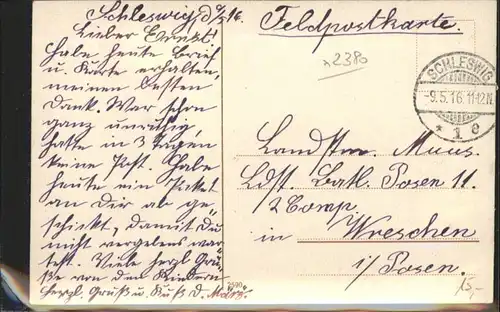 Schleswig, d. 9/5.16.
Lieber Ernst!
Habe heute Brief
u. Karte erhalten,
meinen besten
Dank. War schon
ganz unruhig,
hatte in 3 Tagen
keine Post. Habe
heute ein Paket
an Dir ab ge-
schickt, damit Du
nicht vergebens war-
test. Viele herzl Grü-
ße von den Kindern
herzl. Gruß u. Kuß d.
Feldpostkarte.
2380
SCHLESWIG
-9.5.16.11-12.N.
* 1 e
Landstm. Muus.
Ldst. Batl. Posen 11.
/2 Comp.
in Wreschen
i/Posen.
15,-